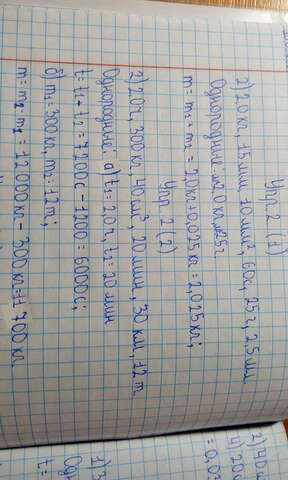 Упр 2 (1)
2) 2,0 кг, 15 мин, 10 мм², 60 с, 25 г, 2,5 мм
Однородные: 2,0 кг и 25 г
m = m₁ + m₂ = 20 кг + 0,025 кг = 2,025 кг;
Упр 2 (2)
2) 2,0 ч, 300 кг, 40 см³, 20 мин, 30 км, 12 т
Однородные: а) t₁ = 2,0 ч, t₂ = 20 мин
t = t₁ + t₂ = 7200 с - 1200 = 6000 с;
б) m₁ = 300 кг, m₂ = 12 т;
m = m₂ - m₁ = 12 000 кг - 300 кг = 11 700 кг
2) 40
4) 20
= 0,0
1) 3
Од
t =